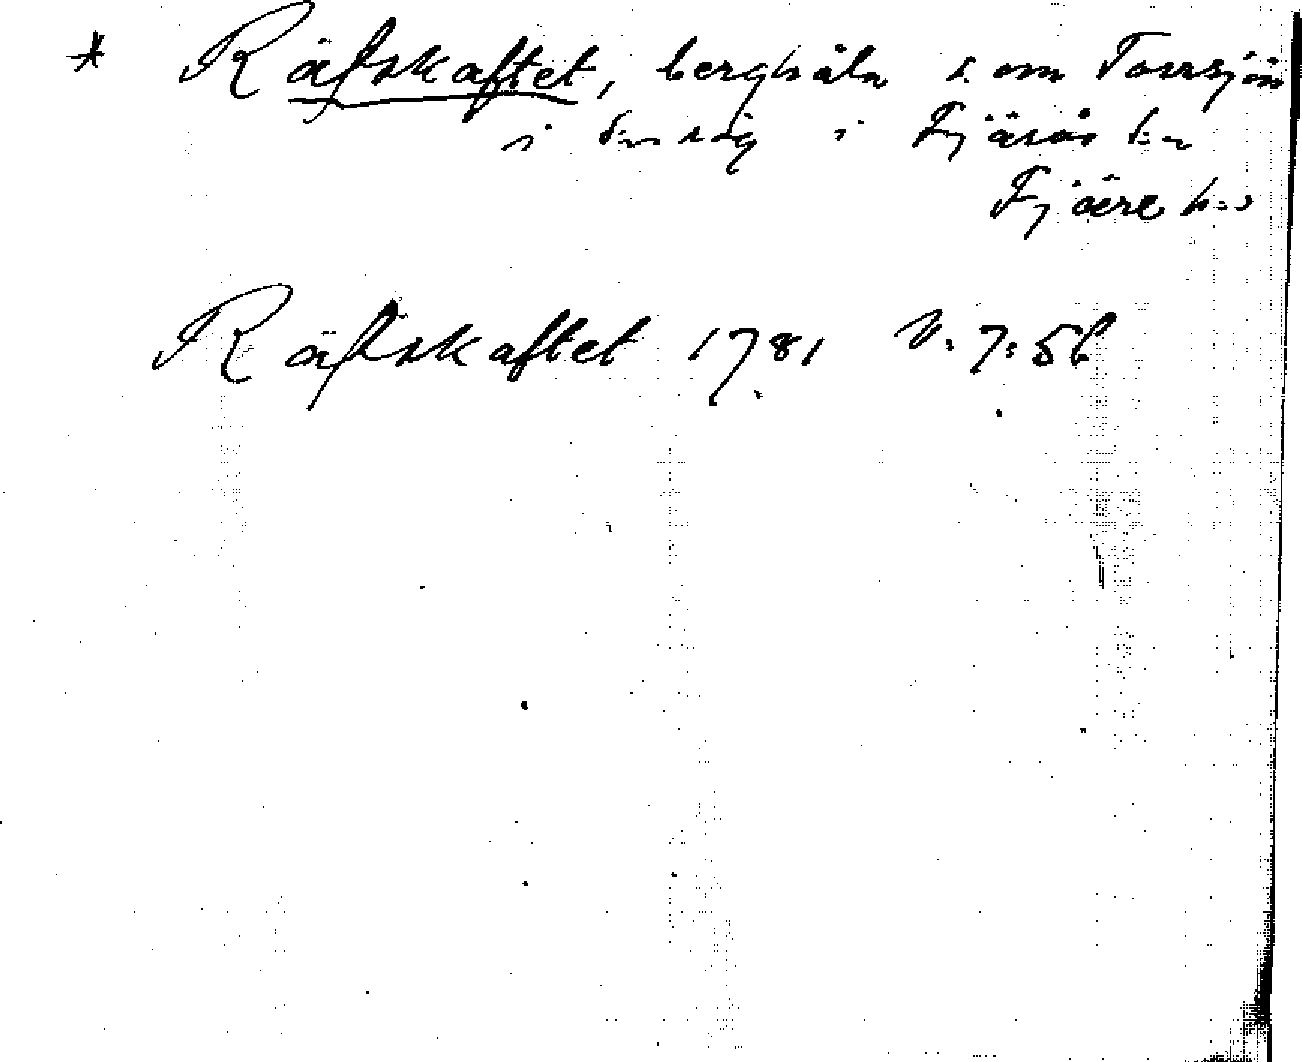 * Räfskaftet, berghäla s om Torrsjön
i i Fjärås s:n
Fjäre h:d
Räfskaftet 1781 V. 7: 56